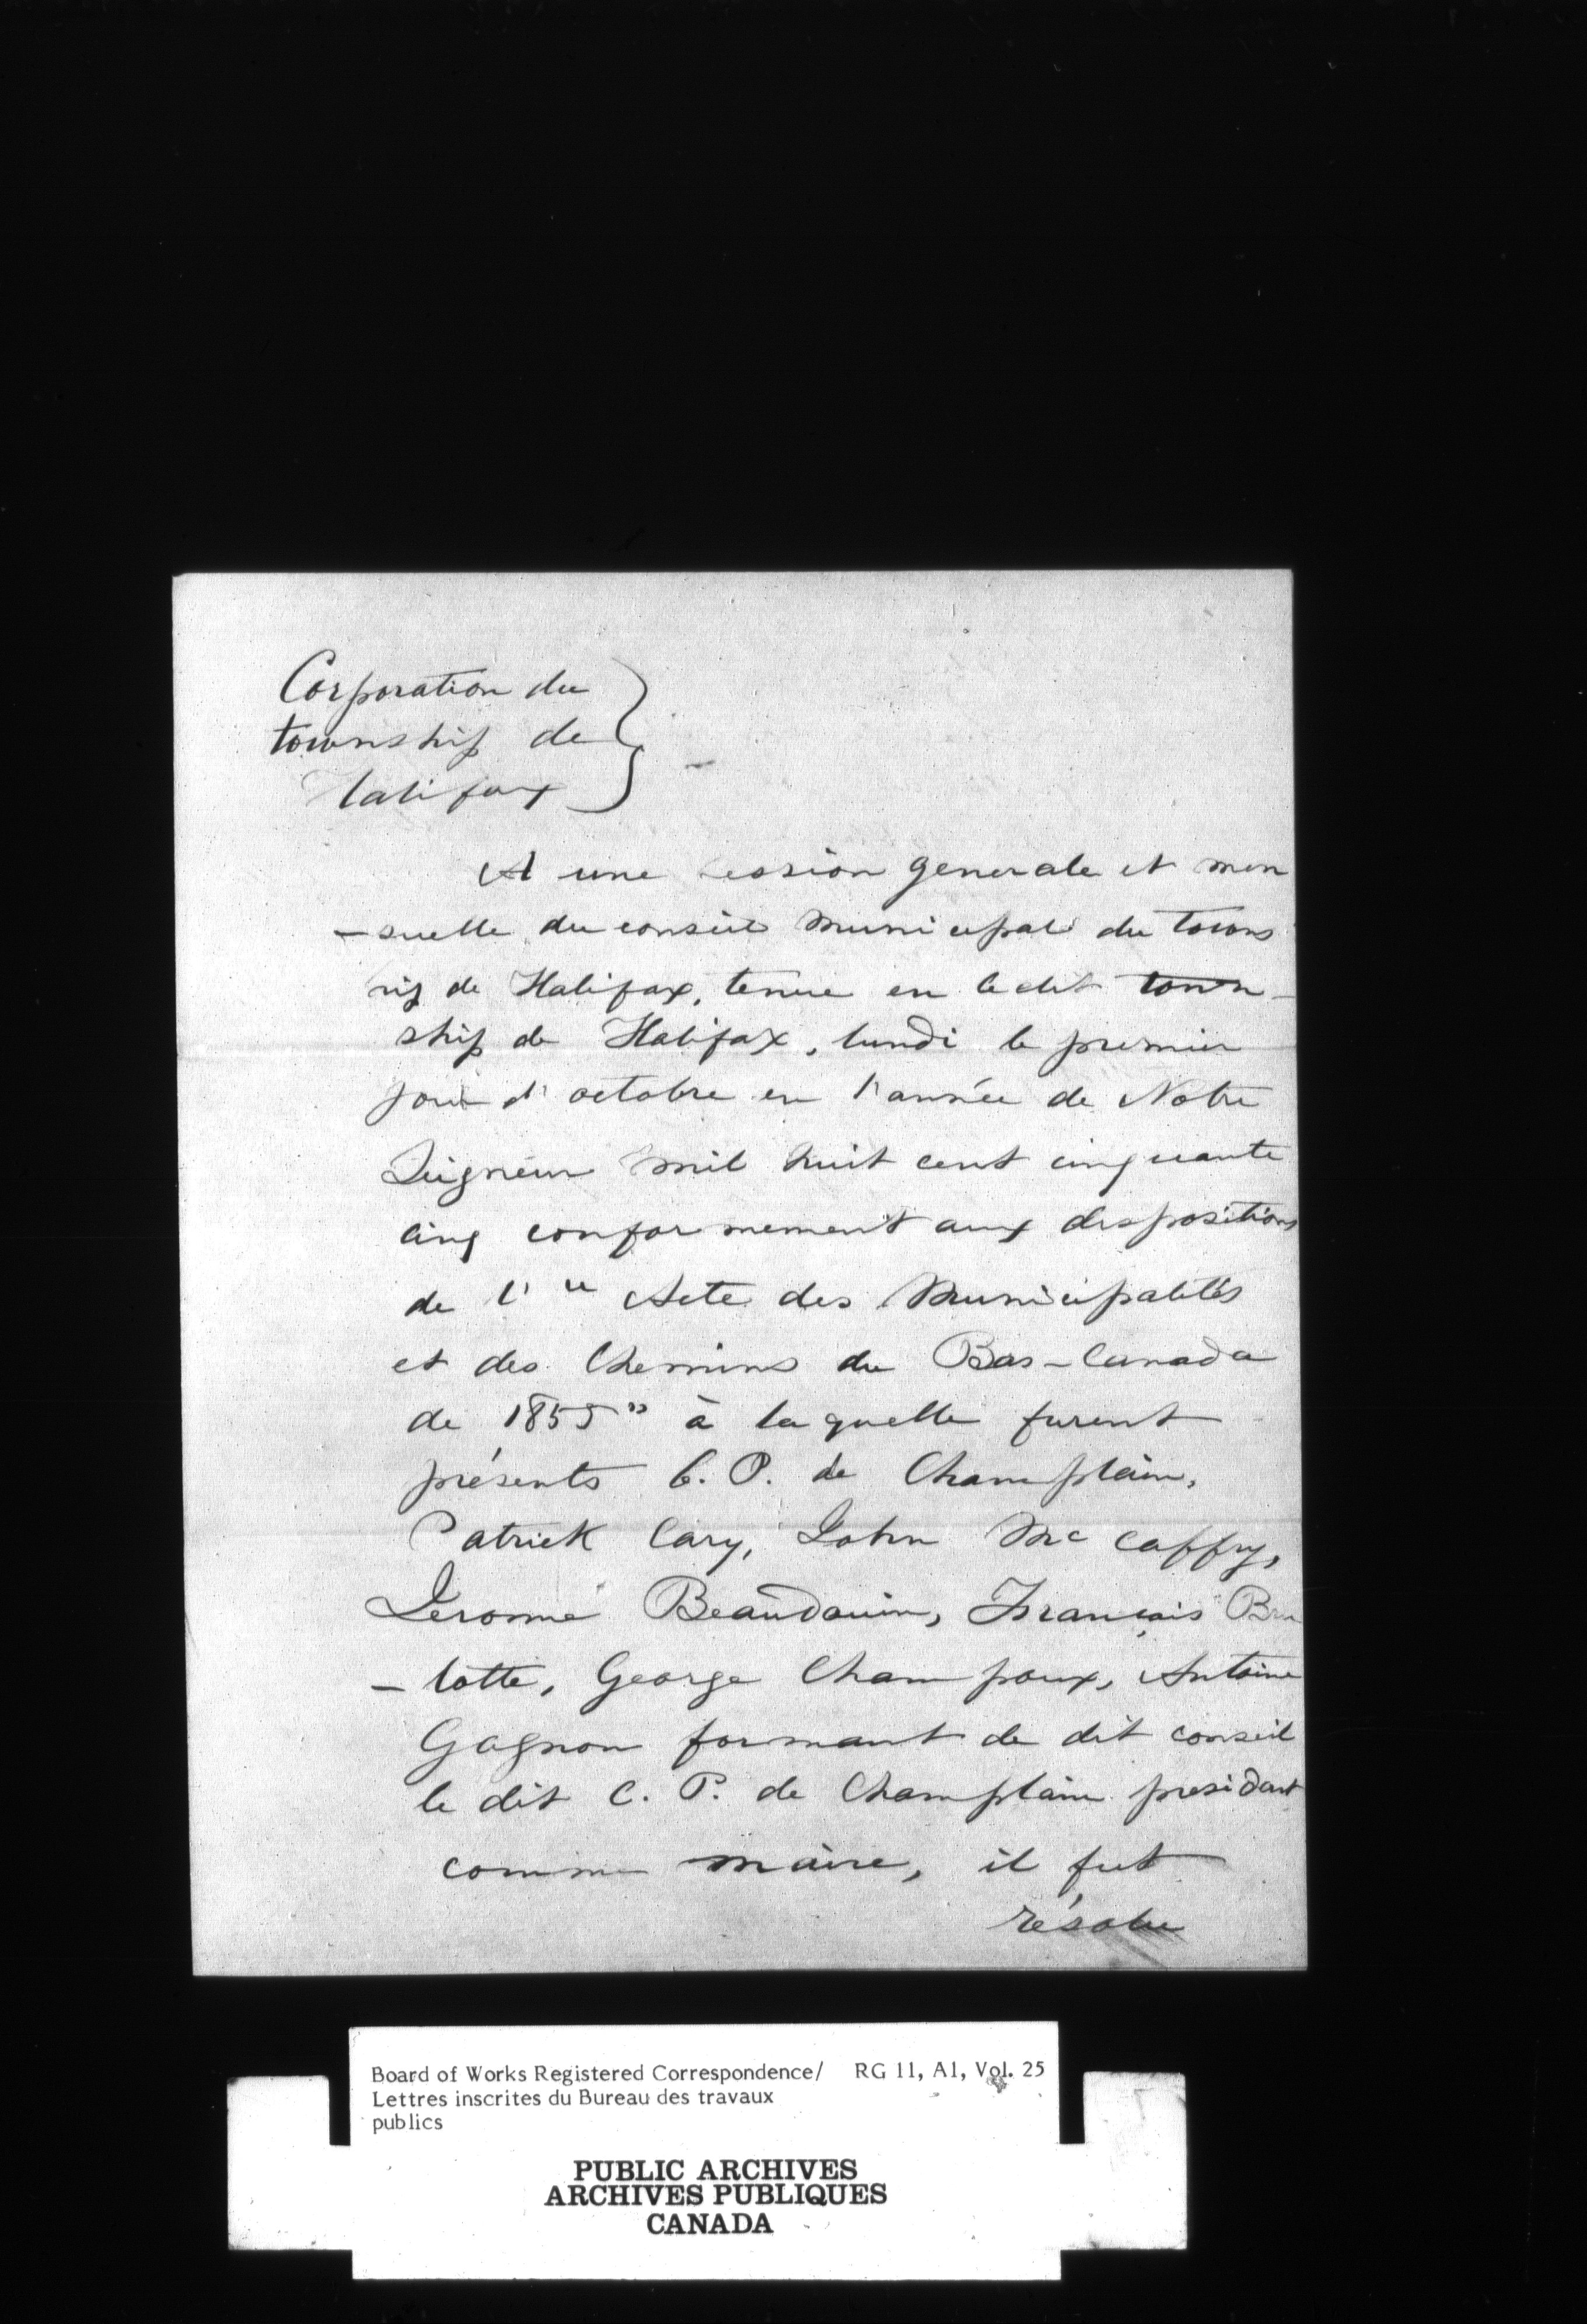 Corporation du
township de
Halifax
A une session generale et men
-suelle du conseil municipal du towns
hip de Halifax, tenue en le dit town-
ship de Halifax, lundi le premier
jour d'octobre en l'année de Notre
Seigneur mil huit cent cinquante
cinq conformement aux dispositions
de l' "Acte des Municipalités
et des Chemins du Bas-Canada
de 1855" à laquelle furent
présents C. P. de Champlain,
Patrick Cary, John Mc Caffry,
Jerome Beaudouin, François Bru
-lotte, George Champoux, Antoine
Gagnon formant de dit conseil
le dit C. P. de Champlain presidant
comme maire, il fut
résolu
Board of Works Registered Correspondence/ RG 11, A1, Vol. 25
Lettres inscrites du Bureau des travaux
publics
PUBLIC ARCHIVES
ARCHIVES PUBLIQUES
CANADA